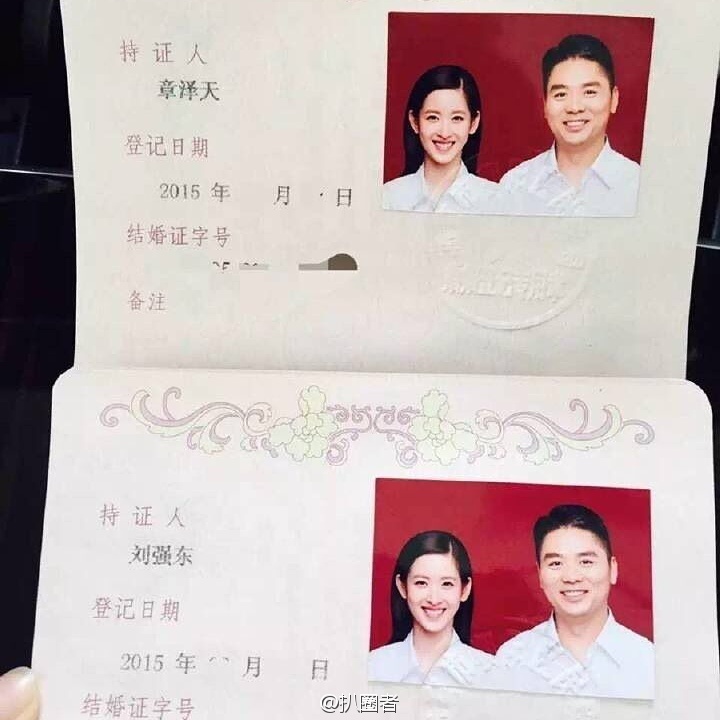 持证人
章泽天
登记日期
2015 年 月 日
结婚证字号
备注
持证人
刘强东
登记日期
2015 年 月 日
结婚证字号
@扒圈者